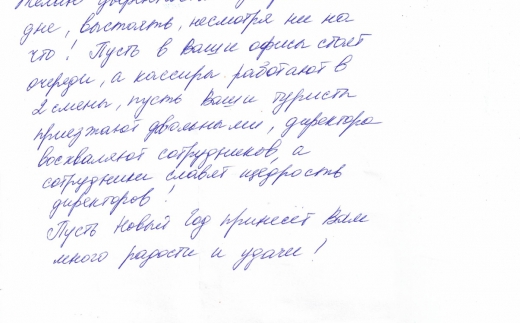 дне, выстоять, несмотря ни на
что! Пусть в Ваши офисы стоят
очереди, а кассиры работают в
2 смены, пусть Ваши туристы
приезжают довольными, директора
восхваляют сотрудников, а
сотрудники славят щедрость
директоров!
Пусть Новый Год принесёт Вам
много радости и удачи!